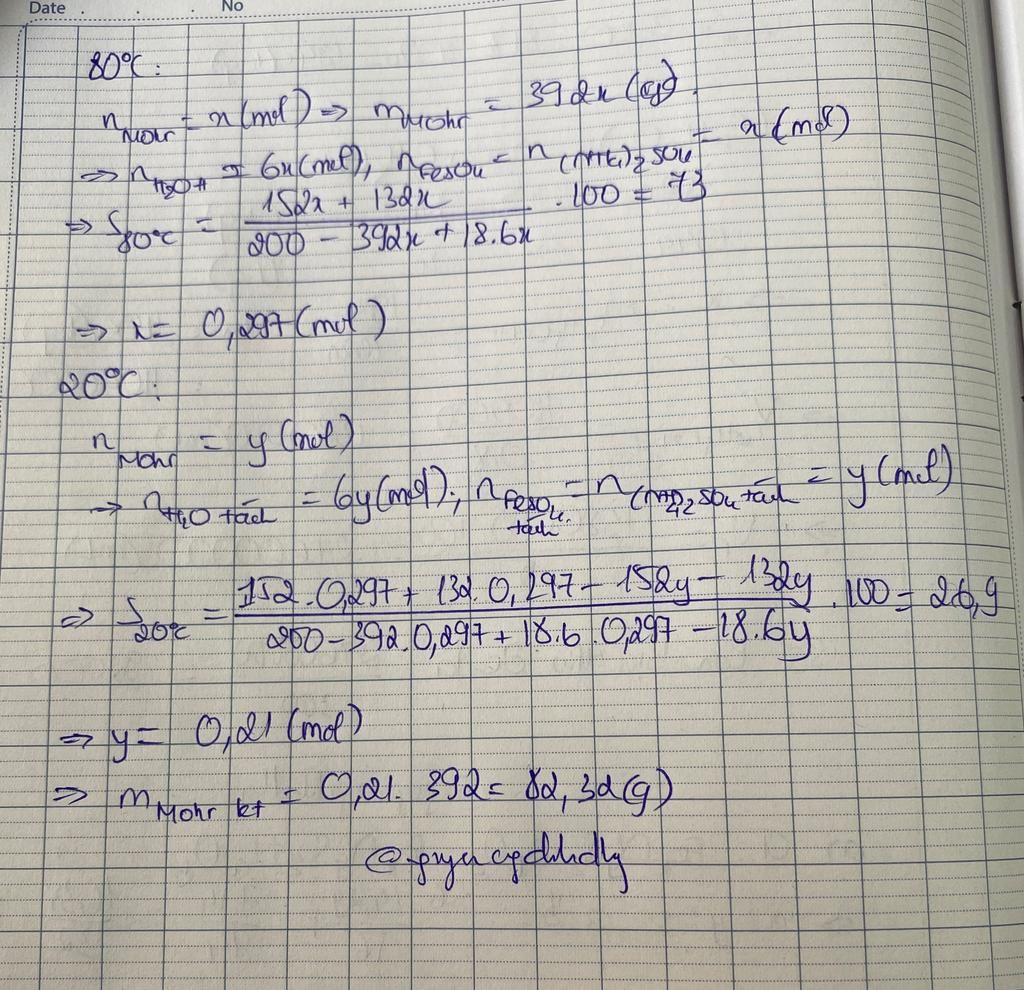 Date . . . No
80°C:
n Mohr = x (mol) => m Mohr = 392x (g)
=> n H2O = 6x (mol), n FeSO4 = n (NH4)2SO4 = x (mol)
=> S 80°C = (152x + 132x) / (200 - 392x + 18.6x) . 100 = 73
=> x = 0,297 (mol)
20°C:
n Mohr = y (mol)
=> n H2O tách = 6y (mol); n FeSO4 tách = n (NH4)2SO4 tách = y (mol)
=> S 20°C = (152.0,297 + 132.0,297 - 152y - 132y) / (200 - 392.0,297 + 18.6.0,297 - 18.6y) . 100 = 26,9
=> y = 0,21 (mol)
=> m Mohr kt = 0,21. 392 = 82,32 (g)